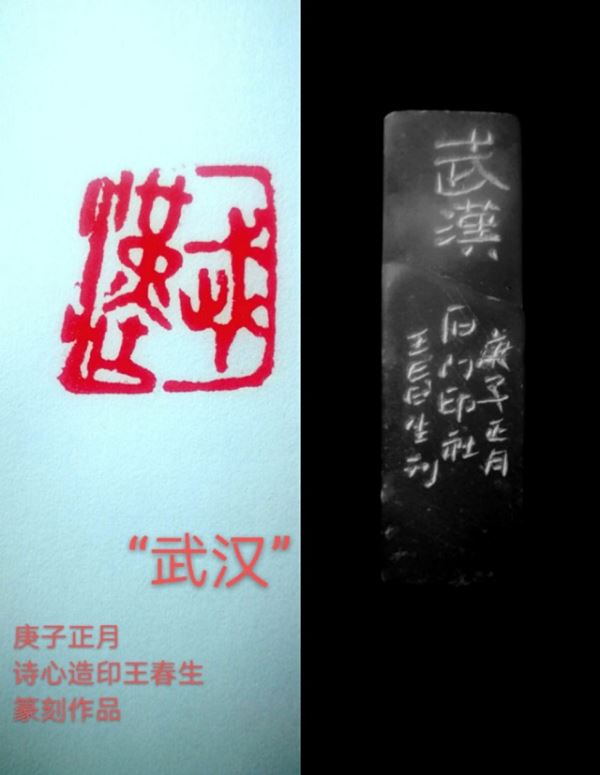 武漢
“武汉”
庚子正月
诗心造印王春生
篆刻作品
武漢
庚子正月
石门印社
王旾生刊